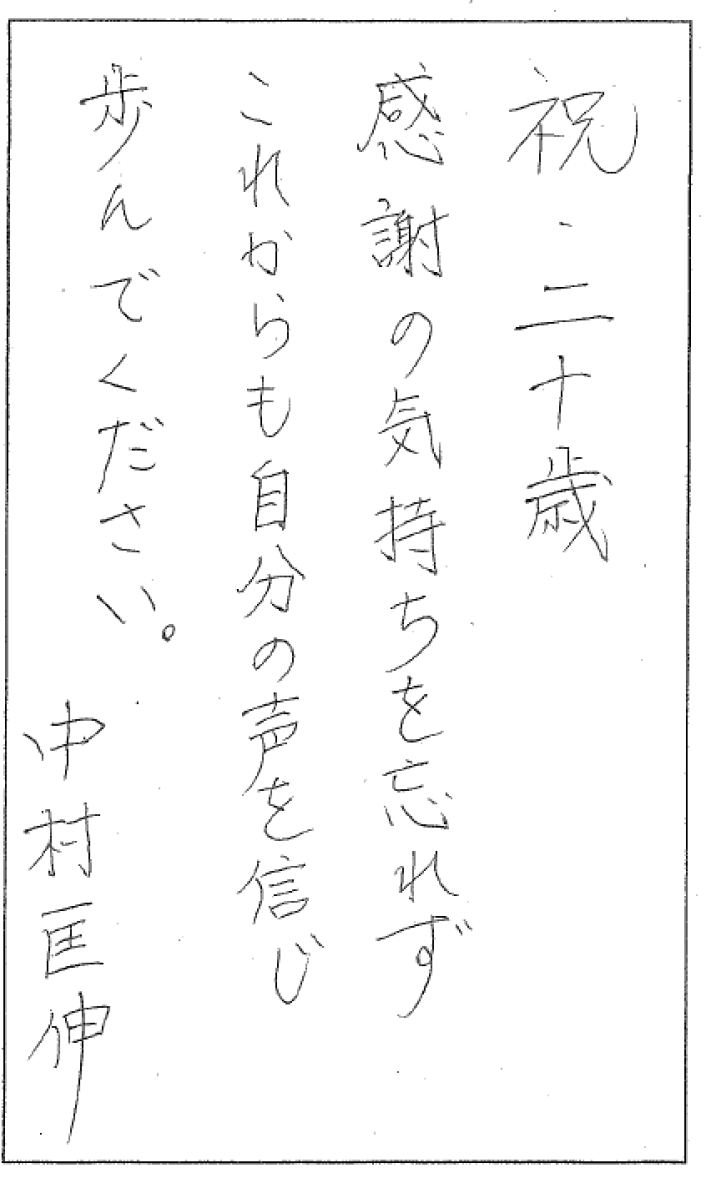 祝・二十歳
感謝の気持ちを忘れず
これからも自分の声を信じ
歩んでください。
中村匡伸